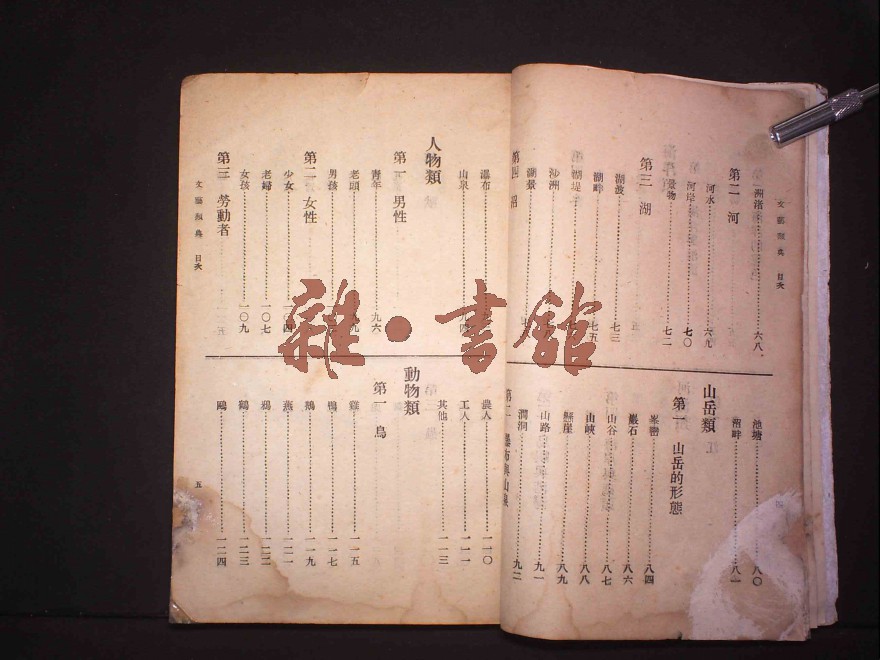 文藝辭典 目次
洲渚……六八
第二 河
河水……六九
河岸……七〇
景物……七二
第三 湖
湖波……七三
湖畔……七五
湖堤
沙洲
湖景
第四 沼
池塘……八〇
沼畔……八一
山岳類
第一 山岳的形態
峯巒……八四
巖石……八六
山谷……八七
山峽……八八
懸崖……八九
山路……九一
澗洞……九二
第二 瀑布與山泉
瀑布
山泉
人物類
第一 男性
青年……九六
老頭
男孩
第二 女性
少女……一〇四
老婦……一〇七
女孩……一〇九
第三 勞動者
農人……一一〇
工人……一一一
其他……一一三
動物類
第一 鳥
雞……一一五
鴨……一一七
鵝……一一九
燕……一二一
鷗……一二四
文藝辭典 目次
五
雜·書館